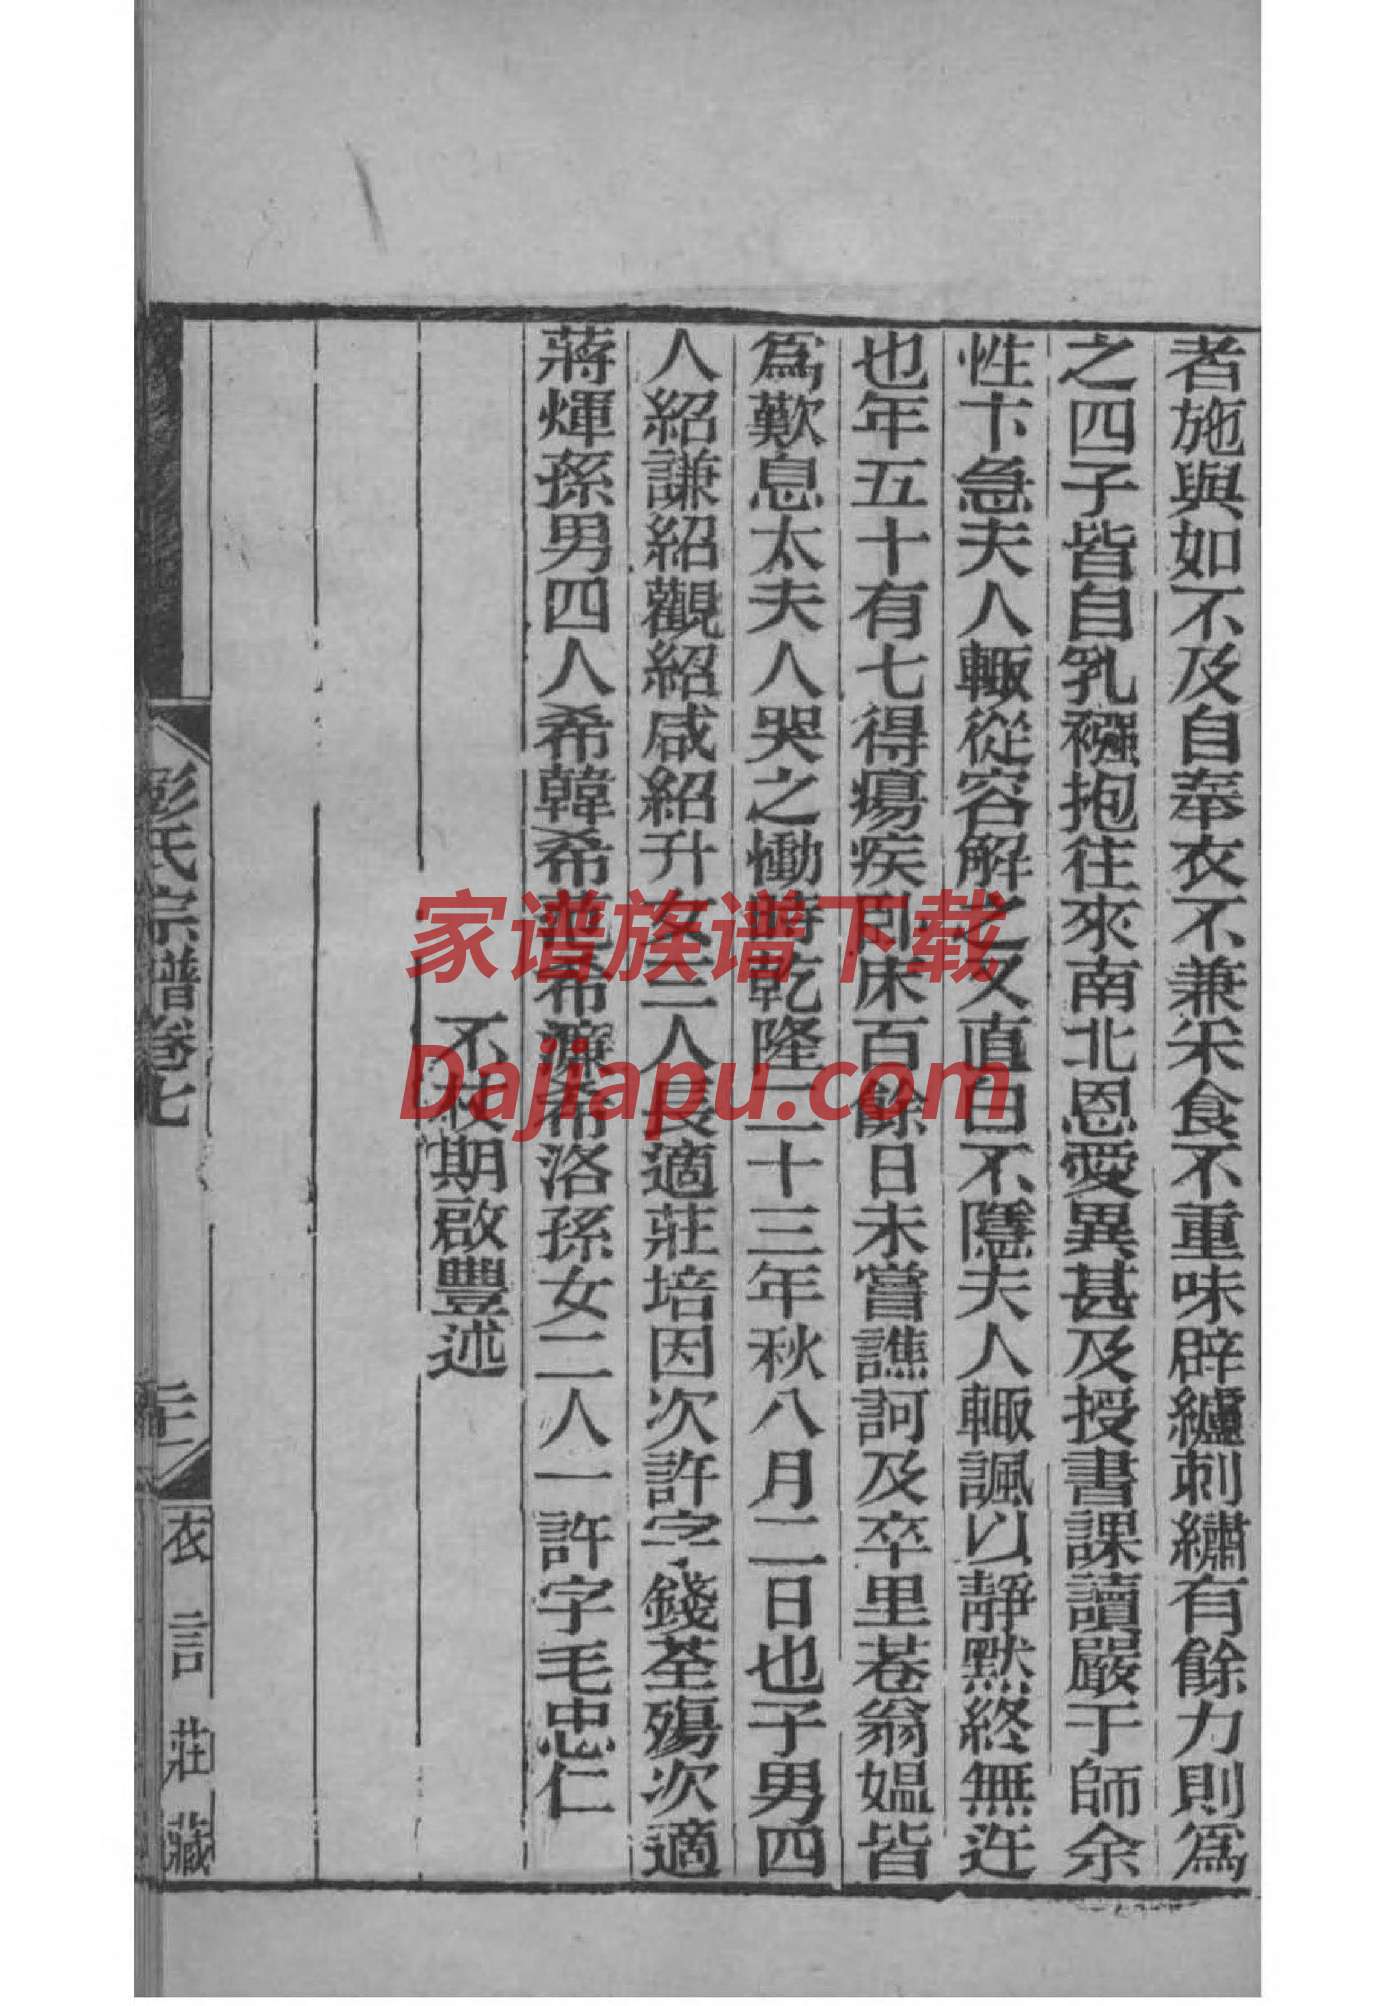 者施與如不及自奉衣不兼采食不重味辟纑刺繡有餘力則爲
之四子皆自乳襁抱往來南北恩愛異甚及授書課讀嚴于師余
性卞急夫人輙從容解之又直白不隱夫人輙諷以靜默終無迕
也年五十有七得瘍疾卧床百餘日未嘗譙訶及卒里巷翁媪皆
爲歎息太夫人哭之慟時乾隆二十三年秋八月二日也子男四
人紹謙紹觀紹咸紹升女三人長適莊培因次許字錢荃殤次適
蔣煇孫男四人希韓希范希濂希洛孫女二人一許字毛忠仁
不杖期啟豐述
彭氏宗譜卷七
衣言莊藏
家谱族谱下载
Dajiapu.com